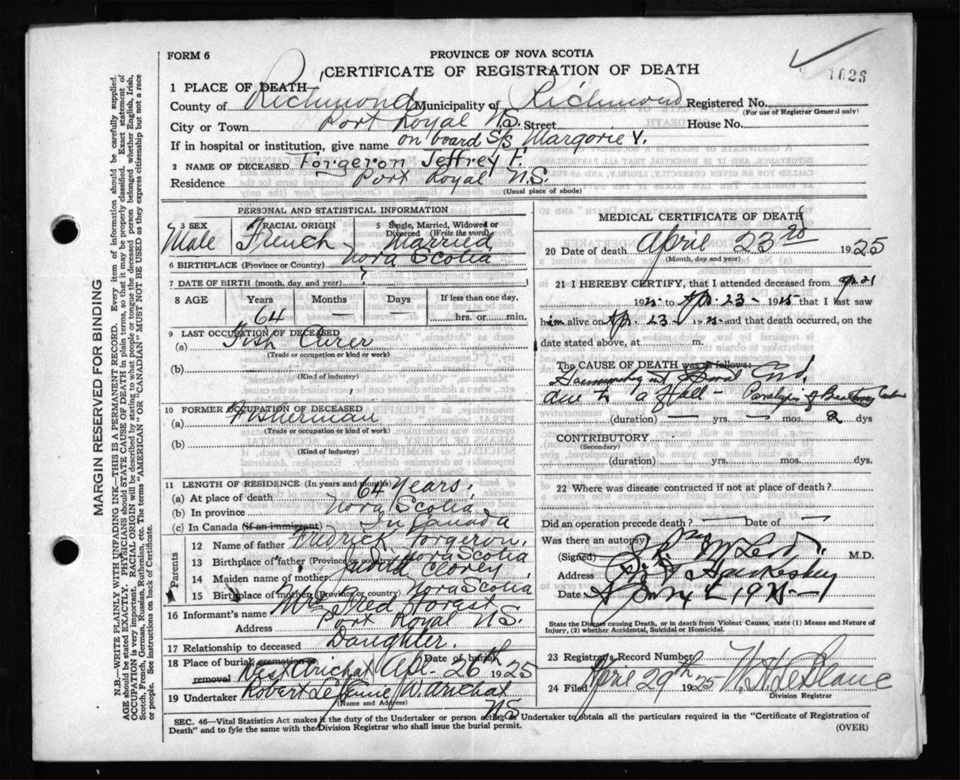 1626
FORM 6
PROVINCE OF NOVA SCOTIA
CERTIFICATE OF REGISTRATION OF DEATH
1 PLACE OF DEATH
County of Richmond Municipality of Richmond Registered No.
(For use of Registrar General only)
City or Town Port Royal N.S. Street House No.
If in hospital or institution, give name on board S/S Margorie V.
2 NAME OF DECEASED Forgeron Jeffrey F.
Residence Port Royal N.S.
(Usual place of abode)
PERSONAL AND STATISTICAL INFORMATION
3 SEX RACIAL ORIGIN 5 Single, Married, Widowed or Divorced (Write the word)
Male French Married
6 BIRTHPLACE (Province or Country) Nova Scotia
7 DATE OF BIRTH (month, day and year) ?
8 AGE Years Months Days If less than one day,
64 — — hrs. or min.
9 LAST OCCUPATION OF DECEASED
(a) Fish Curer
(Trade or occupation or kind or work)
(b)
(Kind of industry)
10 FORMER OCCUPATION OF DECEASED
(a) Fisherman
(Trade or occupation or kind of work)
(b)
(Kind of industry)
11 LENGTH OF RESIDENCE (In years and months)
(a) At place of death 64 Years.
(b) In province Nova Scotia
(c) In Canada (if an immigrant) In Canada
Parents
12 Name of father Fredrick Forgeron.
13 Birthplace of father (Province or Country) Nova Scotia
14 Maiden name of mother Judith
15 Birthplace of mother Nova Scotia
16 Informant's name Mrs Fred Forest
Address Port Royal N.S.
17 Relationship to deceased Daughter.
18 Place of burial cremation or removal West Arichat Date of burial Apr. 26th 1925
19 Undertaker Robert W. Arichat N.S.
(Name and Address)
MEDICAL CERTIFICATE OF DEATH
20 Date of death April 23rd 1925
(Month, day and year)
21 I HEREBY CERTIFY, that I attended deceased from Apr. 21
1925 to Apr. 23 — 1925 that I last saw
him alive on Apr. 23 — 1925 and that death occurred, on the
date stated above, at m.
The CAUSE OF DEATH was as follows:
due to a Fall — Paralysis of
(duration) — yrs. — mos. 2 dys
CONTRIBUTORY
(Secondary)
(duration) yrs. mos. dys.
22 Where was disease contracted if not at place of death?
Did an operation precede death? — Date of —
Was there an autopsy no
(Signed) M.D.
Address
Date
State the Disease causing Death, or in death from Violent Causes, state (1) Means and Nature of Injury, (2) whether Accidental, Suicidal or Homicidal.
23 Registrar's Record Number
24 Filed April 29th 1925 W. H. LeBlanc
Division Registrar
SEC. 46—Vital Statistics Act makes it the duty of the Undertaker or person acting as Undertaker to obtain all the particulars required in the "Certificate of Registration of
Death" and to fyle the same with the Division Registrar who shall issue the burial permit.
(OVER)
MARGIN RESERVED FOR BINDING
N.B.—WRITE PLAINLY WITH UNFADING INK—THIS IS A PERMANENT RECORD. Every item of information should be carefully supplied.
AGE should be stated EXACTLY. PHYSICIANS should STATE CAUSE OF DEATH in plain terms, so that it may be properly classified. Exact statement of
OCCUPATION is very important. RACIAL ORIGIN will be described by stating to what people or tongue the deceased person belonged whether English, Irish,
Scotch, French, German, Russian, Ruthenian, etc. The terms "AMERICAN" OR "CANADIAN" MUST NOT BE USED as they express citizenship but not a race
or people. See instructions on back of Certificate.